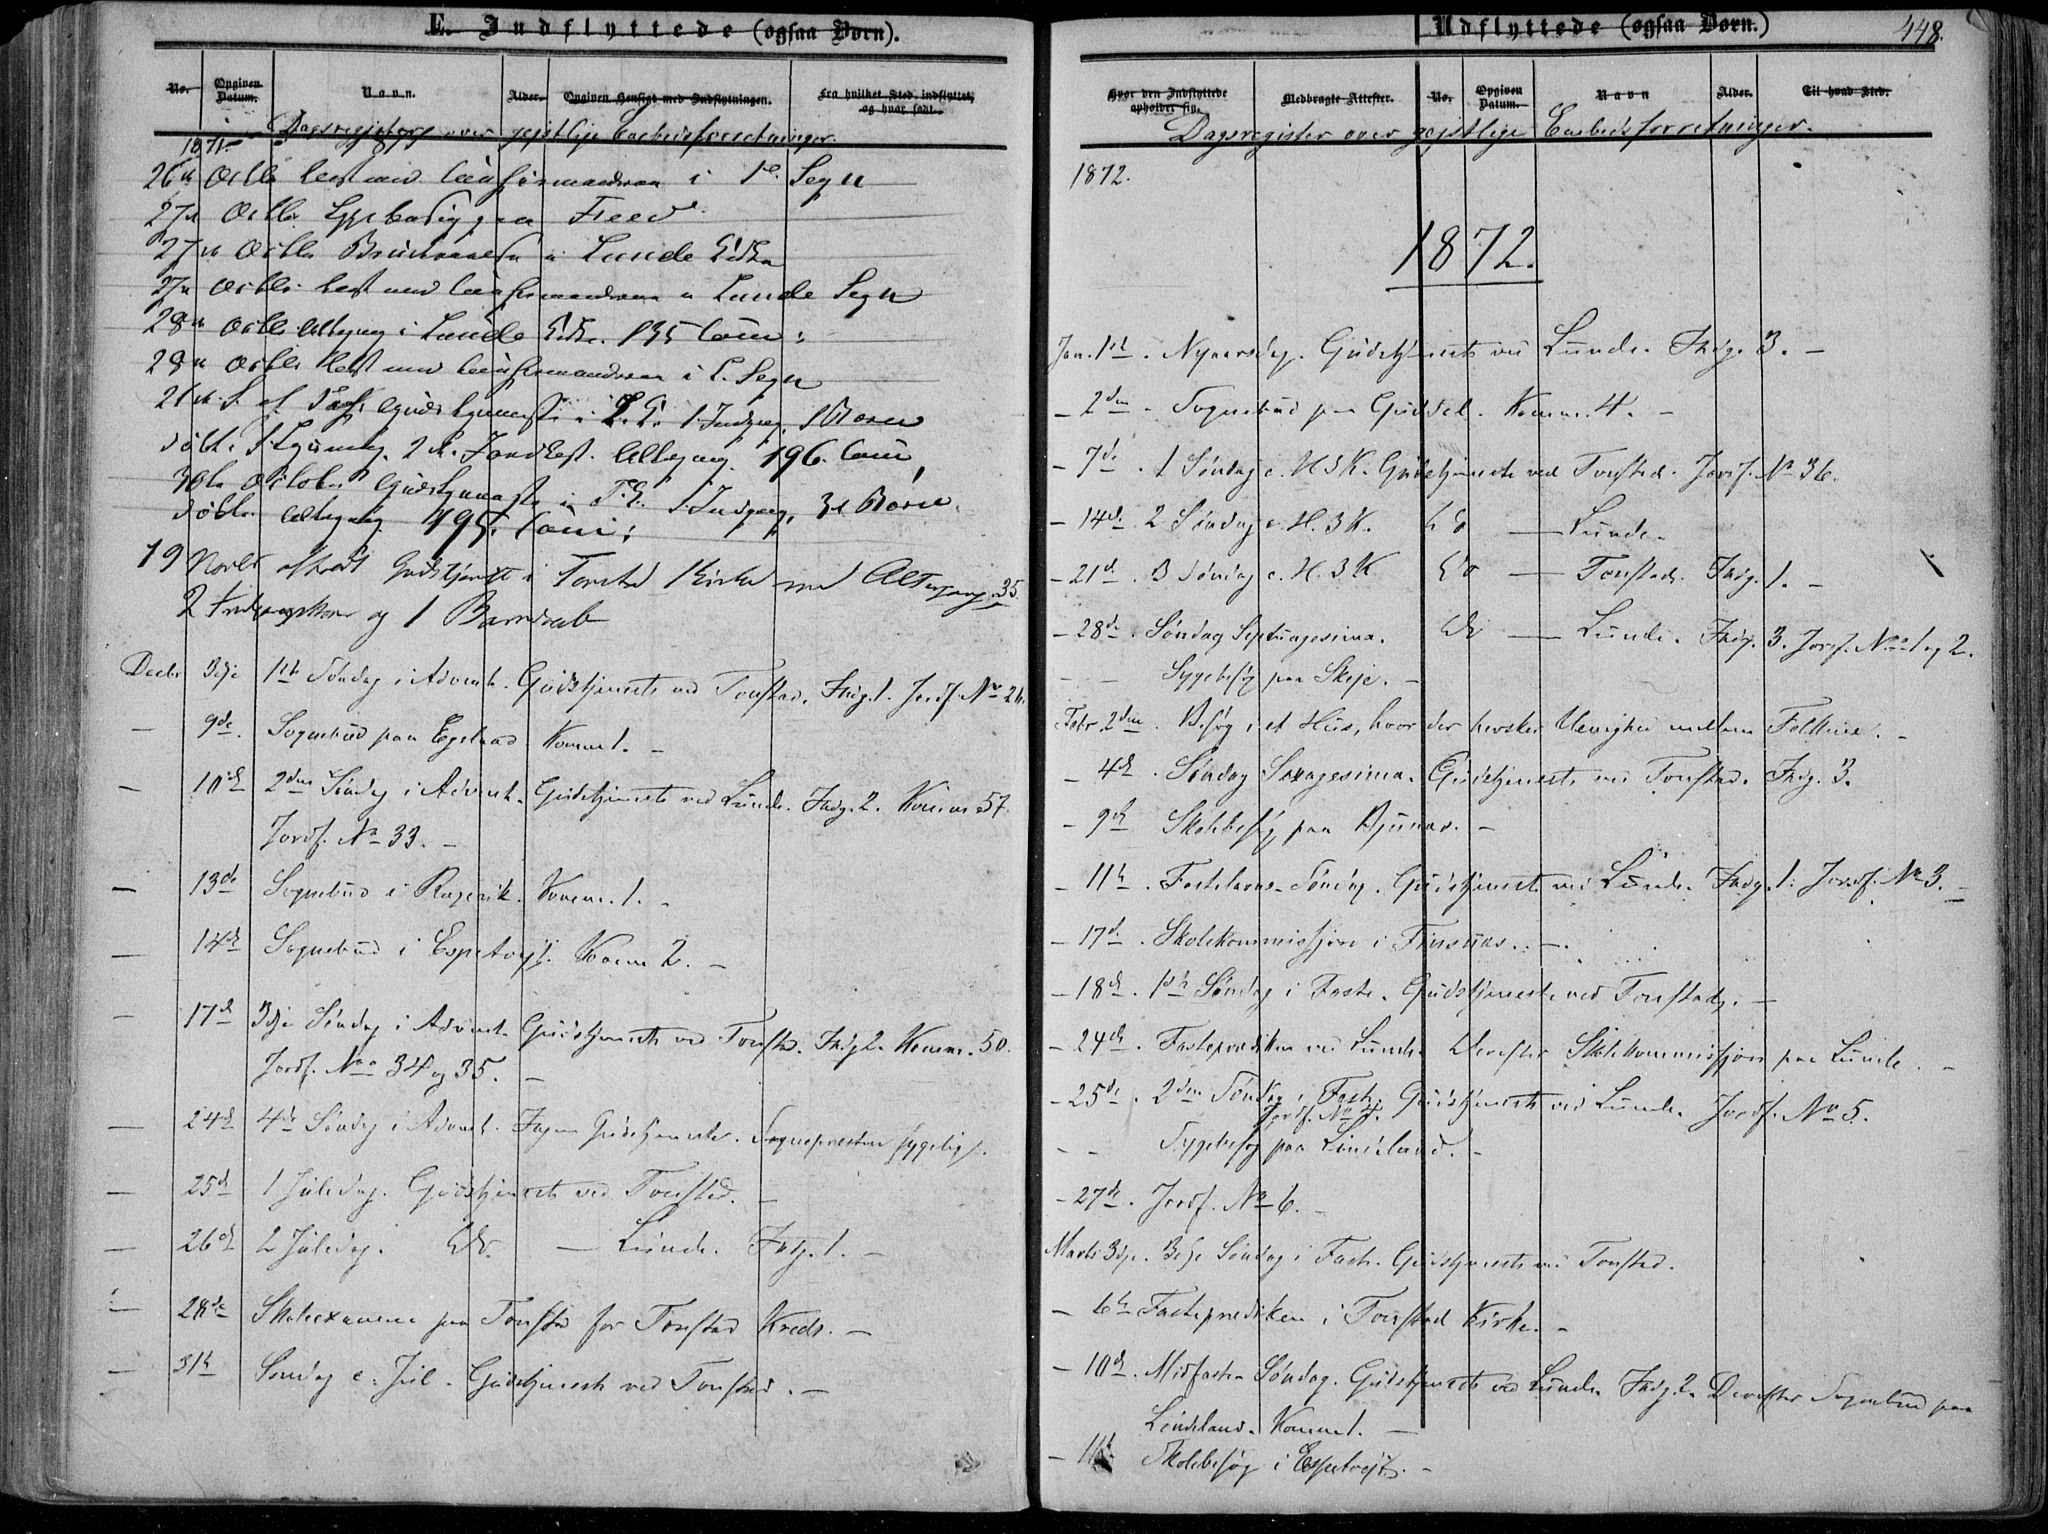 E. Indflyttede (ogsaa Børn).
No. Opgiven Datum. Navn. Alder. Opgiven Hensigt med Indflytningen. Fra hvilket Sted indflyttet, og hvor født.
Dagsregister over gejstlige Embedsforretninger.
1871.
26 Octbr Læst med Confirmanderne i Segn
27 Octbr Sygebesøg paa
27 Octbr i Lunde
27 Octbr Læst med Confirmanderne i Lunde Segn
28 Octbr Altergang i Lunde 135 Com:
29 Octbr Læst med Confirmanderne i Segn
Gudstjeneste i 1 Indgang, 1 Barn
døbt. Altergang 196 Com,
October Gudstjeneste i Børn
døbt. Altergang 195 Com:
19 Novbr afholdt Gudstjeneste i Tonstad Kirke med Altergang 35.
2 og 1 Barndaab
Decbr 3dje 1ste Søndag i Advent. Gudstjeneste ved Tonstad. Indg. 1. Jordf. No 26.
— 9de. Sognebud paa Egeland Komm. 1. —
— 10de 2den Søndag i Advent. Gudstjeneste ved Lunde. Indg. 2. Komm. 57.
Jordf. No 33. —
— 13de Sognebud i Komm. 1. —
— 14de Sognebud i Espetvejt. Komm 2. —
— 17de 3dje Søndag i Advent. Gudstjeneste ved Tonstad. Indg 2. Komm. 50.
Jordf. No 34 og 35. —
— 24de 4de Søndag i Advent. Ingen Gudstjeneste. Sognepræsten sygelig.
— 25de 1 Juledag. Gudstjeneste ved Tonstad. —
— 26de 2 Juledag. Do. — Lunde. Indg. 1. —
— 28de Skoleexamen paa Tonstad for Tonstad Kreds. —
— 31te Søndag e. Jul. Gudstjeneste ved Tonstad. —
Udflyttede (ogsaa Børn.)
448.
Hvor den Indflyttede opholder sig. Medbragte Attester. No. Opgiven Datum. Navn Alder. Til hvad Sted.
Dagsregister over gejstlige Embedsforretninger.
1872.
1872.
Jan. 1ste. Nyaarsdag. Gudstjeneste ved Lunde. Indg. 3. —
— 2den. Sognebud paa Guddal. Komm. 4. —
— 7de. 1 Søndag e. H. 3 K. Gudstjeneste ved Tonstad. Jordf. No 36.
— 14de. 2 Søndag e. H. 3 K. Do — Lunde.
— 21de. 3 Søndag e. H. 3 K Do — Tonstad. Indg. 1. —
— 28de. Søndag Septuagesima. Do — Lunde. Indg. 3. Jordf. No 1 og 2.
— — Sygebesøg paa Skeje. —
Febr. 2den. Besøg i et Hus, hvor der hersker Uenighed mellem Folkene. —
— 4de. Søndag Sexagesima. Gudstjeneste ved Tonstad. Indg. 3.
— 9de Skolebesøg paa Bjunæs. —
— 11te. Fastelavns-Søndag. Gudstjeneste ved Lunde. Indg. 1. Jordf. No 3. —
— 17de. Skolekommissjon i Finsnæs. —
— 18de. 1ste Søndag i Faste. Gudstjeneste ved Tonstad. —
— 24de. Fasteprædiken ved Lunde. Derefter Skolekommissjon paa Lunde. —
— 25de. 2den Søndag i Faste. Gudstjeneste ved Lunde. Jordf. No 5.
Jordf. No 4.
— — Sygebesøg paa Lindeland. —
— 27de. Jordf. No 6. —
Marts 3dje. 3dje Søndag i Faste. Gudstjeneste ved Tonstad.
— 6te Fasteprædiken i Tonstad Kirke. —
— 10de. Midfaste Søndag. Gudstjeneste ved Lunde. Indg. 2. Derefter Sognebud paa
Lindeland. Komm 1. —
— 11te Skolebesøg i Espetvejt. —